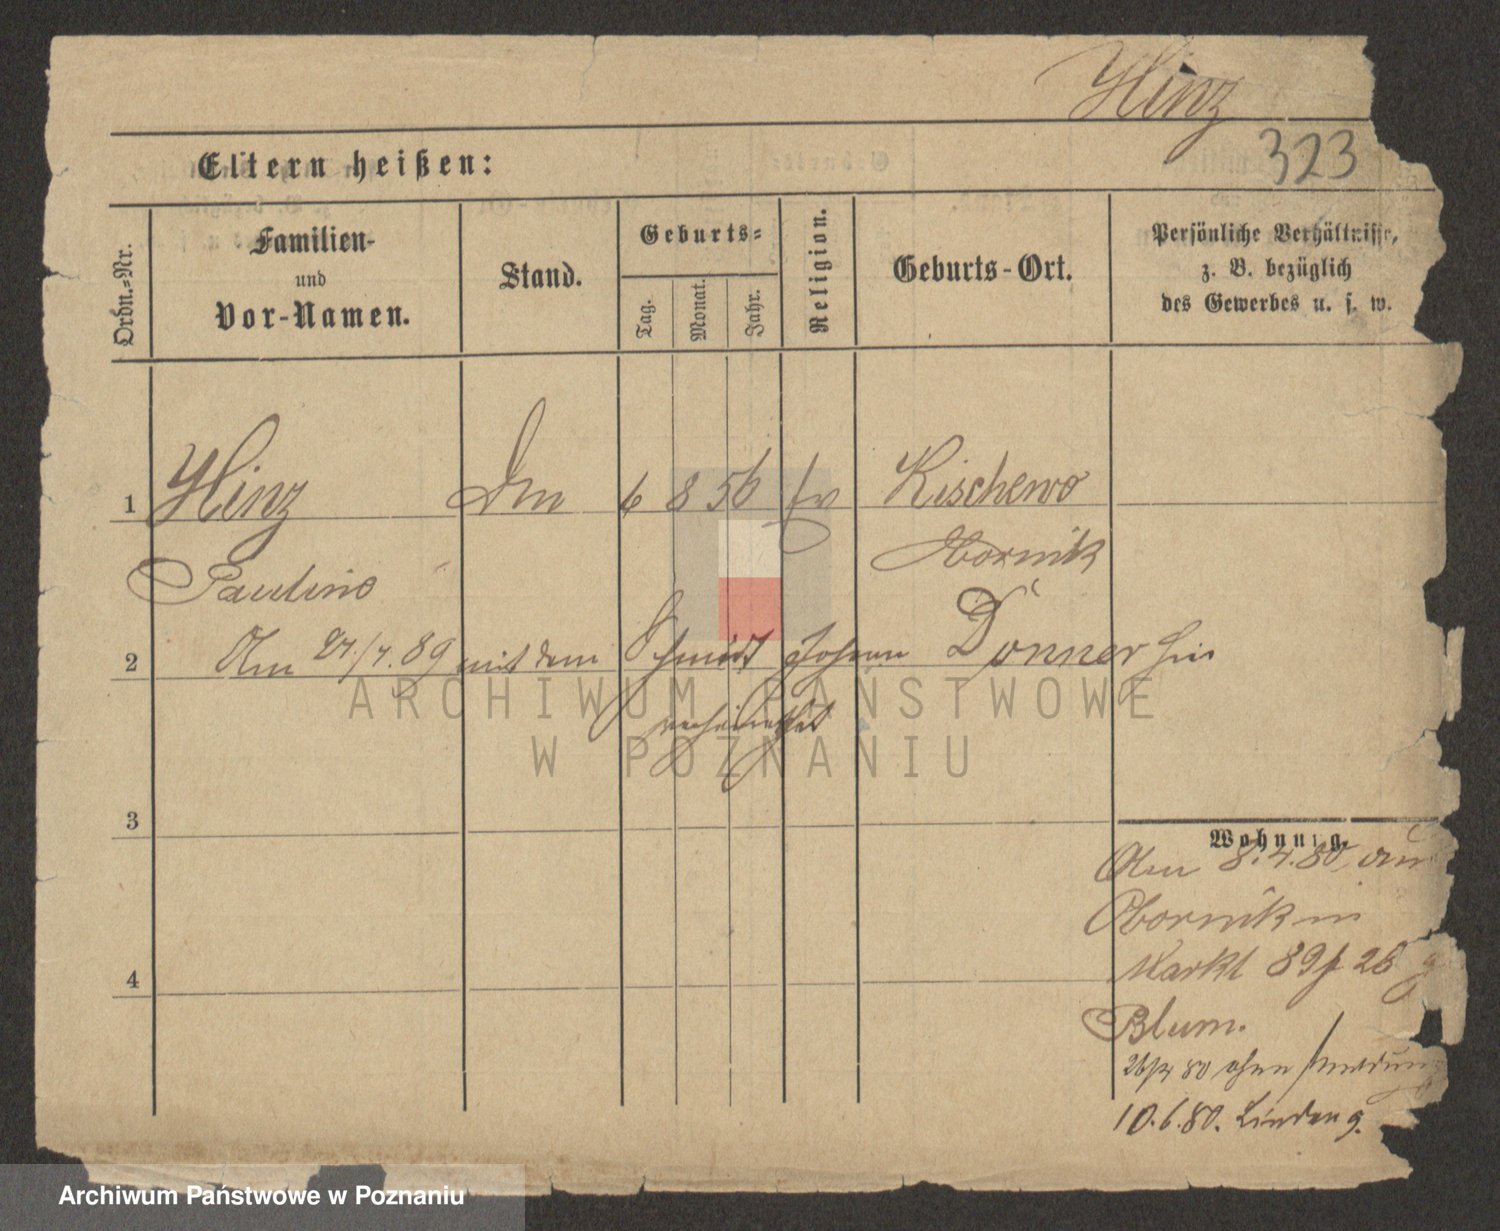 Hinz
323
Eltern heißen:
Ordn.-Nr.
Familien-
und
Vor-Namen.
Stand.
Geburts-
Tag.
Monat.
Jahr.
Religion.
Geburts-Ort.
Persönliche Verhältnisse,
z. B. bezüglich
des Gewerbes u. s. w.
1 Hinz 6 8 56 Kischewo
Obornik
Pauline
2 Am 27/7.89 mit dem Schmidt Johann Donner hier
verheirathet
ARCHIWUM PAŃSTWOWE
W POZNANIU
3
Wohnung.
Am 8.4.80, aus
Obornik in
Markt 89
4
Blum.
80 ohne
10.6.80. Linden
Archiwum Państwowe w Poznaniu